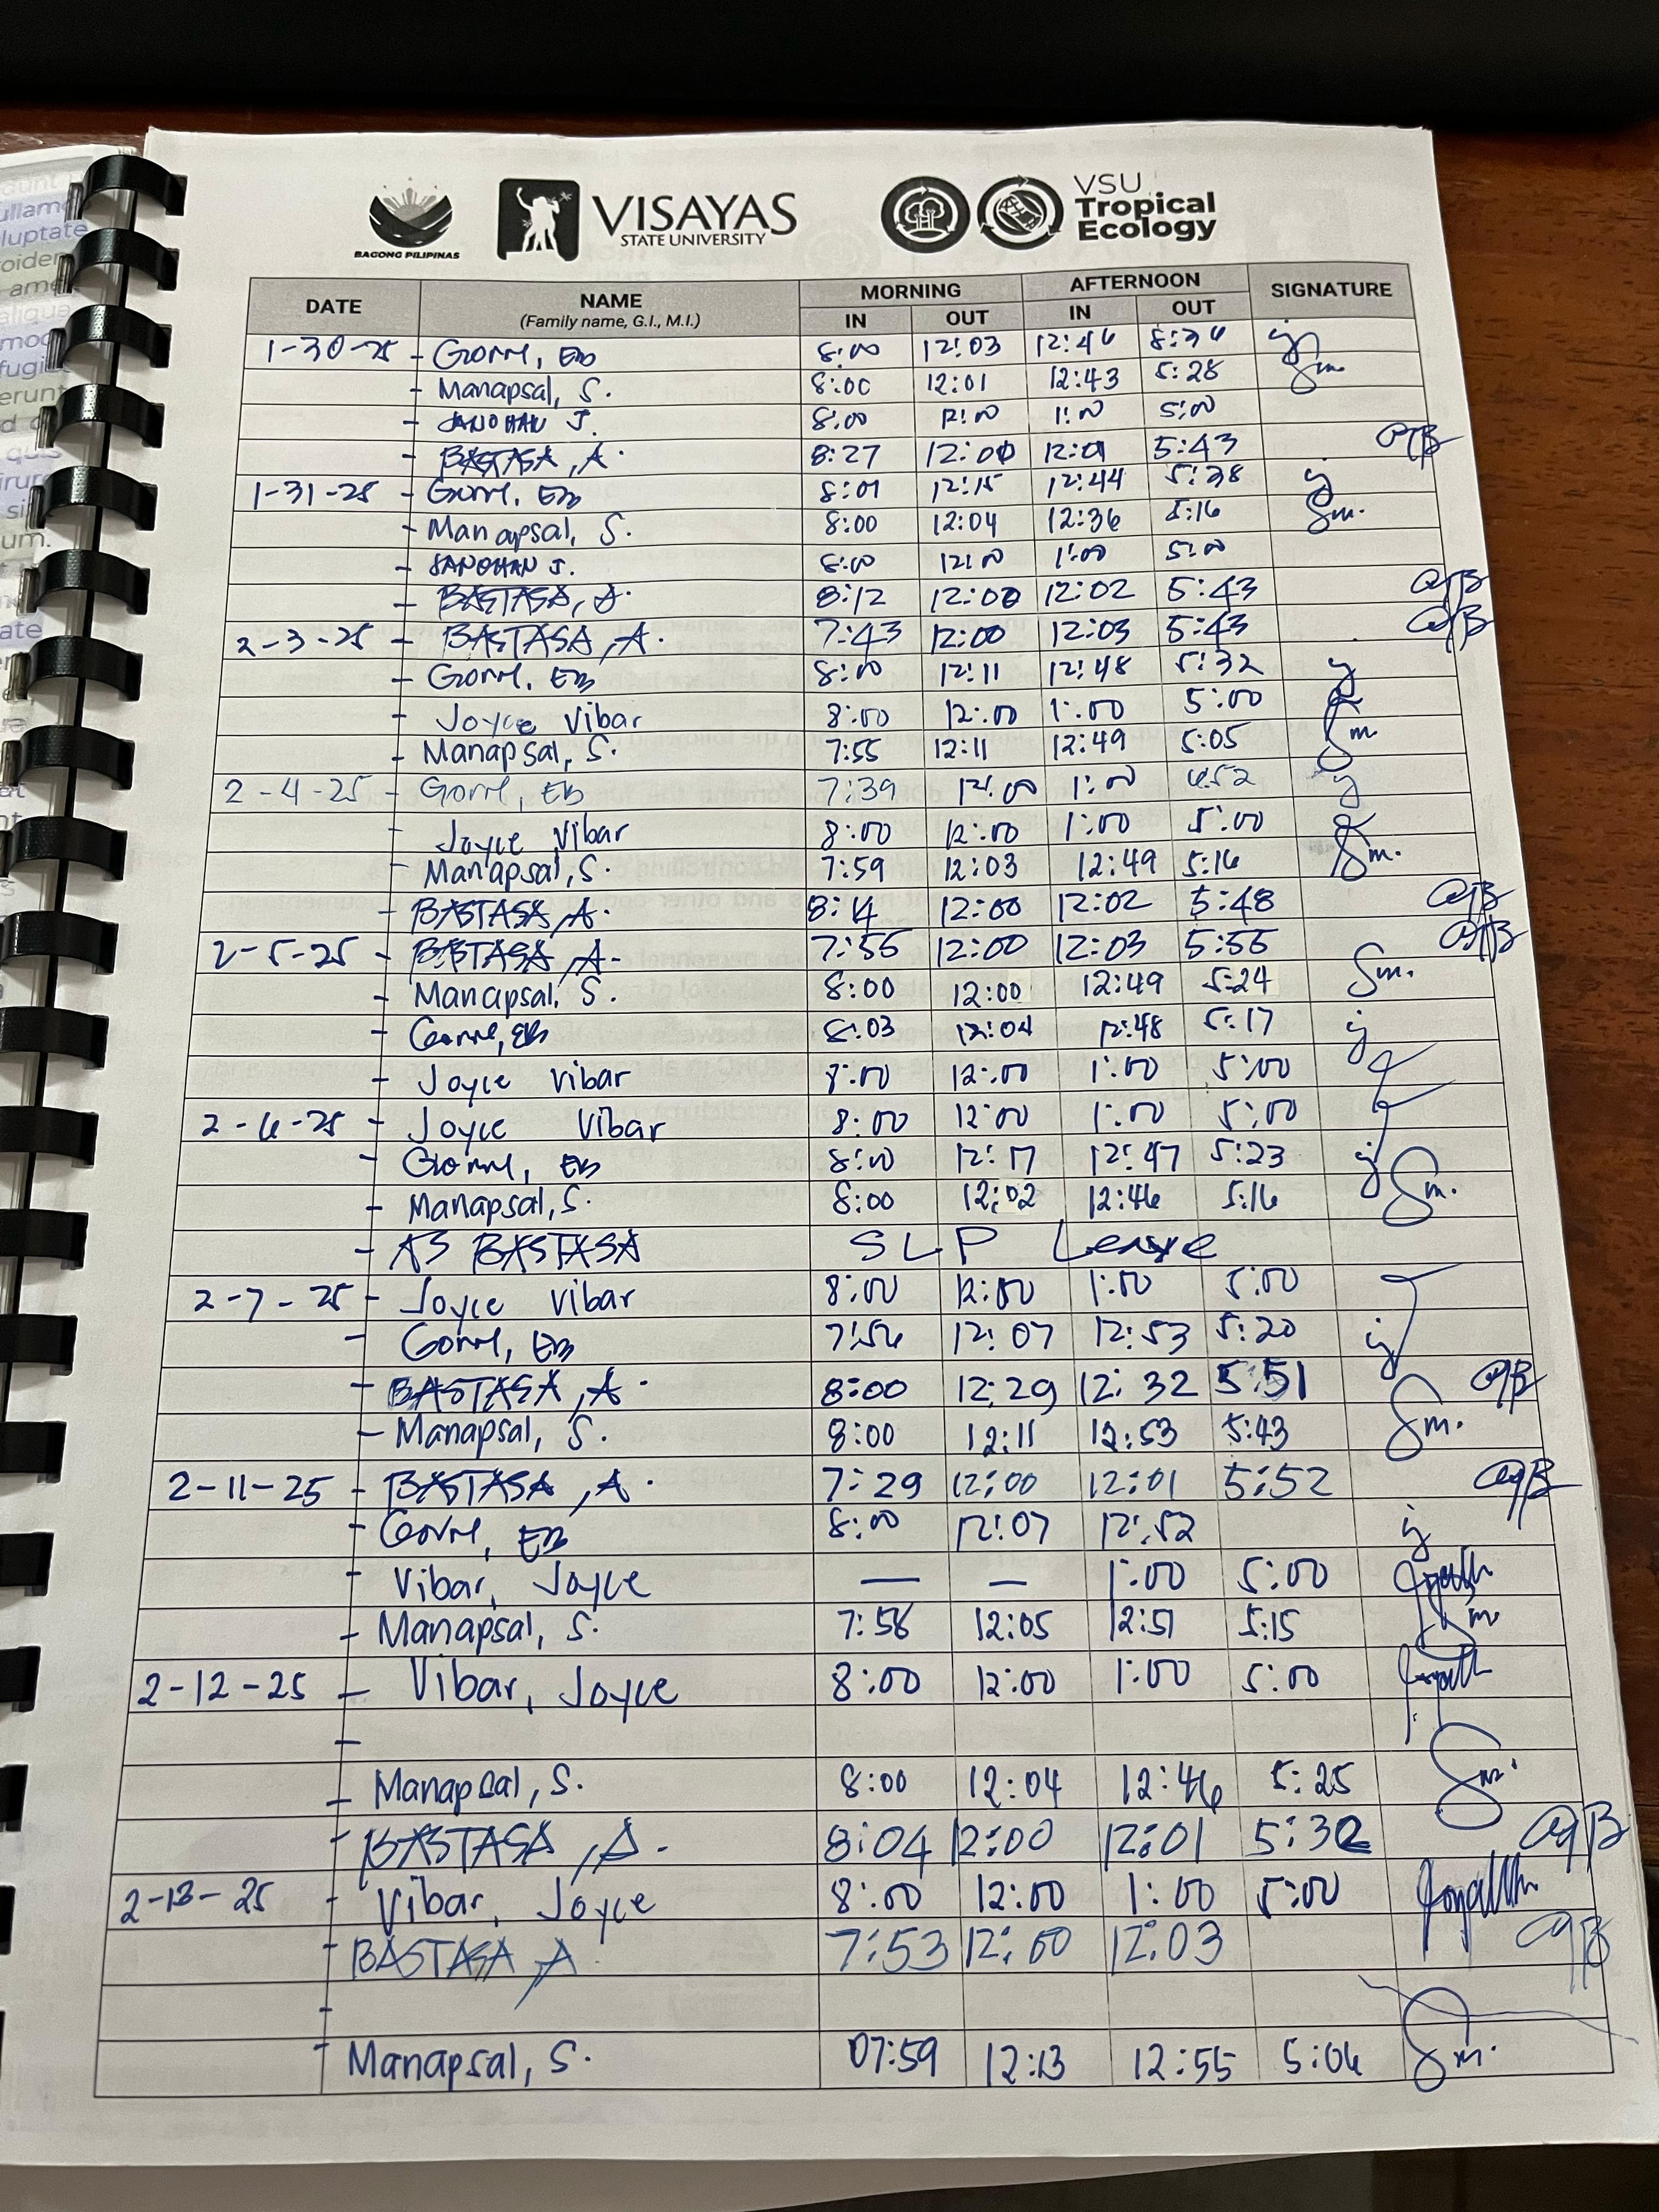 BAGONG PILIPINAS
VISAYAS
STATE UNIVERSITY
VSU
Tropical
Ecology
DATE NAME MORNING AFTERNOON SIGNATURE
(Family name, G.I., M.I.) IN OUT IN OUT
1-30-25 - Gorre, EB 8:00 12:03 12:46
- Manapsal, S. 8:00 12:01 12:43 5:28 Sm.
- SANOHAN J. 8:00 12:00 1:00 5:00
- BASTASA, A. 8:27 12:00 12:01 5:43
1-31-25 - Gorre, EB 8:01 12:15 12:44 5:38
- Manapsal, S. 8:00 12:04 12:36 5:16 Sm.
- SANOHAN J. 8:00 12:00 1:00 5:00
- BASTASA, A. 8:12 12:00 12:02 5:43
2-3-25 - BASTASA, A. 7:43 12:00 12:03 5:43
- Gorre, EB 8:00 12:11 12:48 5:32
- Joyce Vibar 8:00 12:00 1:00 5:00
- Manapsal, S. 7:55 12:11 12:49 5:05 Sm
2-4-25 - Gorre, EB 7:39 12:00 1:00
- Joyce Vibar 8:00 12:00 1:00 5:00
- Manapsal, S. 7:59 12:03 12:49 5:16 Sm.
- BASTASA, A. 8:14 12:00 12:02 5:48
2-5-25 - BASTASA, A. 7:55 12:00 12:03 5:55
- Manapsal, S. 8:00 12:00 12:49 5:24 Sm.
- Gorre, EB 8:03 12:04 12:48 5:17
- Joyce Vibar 8:00 12:00 1:00 5:00
2-6-25 - Joyce Vibar 8:00 12:00 1:00 5:00
- Gorre, EB 8:00 12:17 12:47 5:23
- Manapsal, S. 8:00 12:02 12:46 5:16 Sm.
- AS BASTASA SLP Leave
2-7-25 - Joyce Vibar 8:00 12:00 1:00 5:00
- Gorre, EB 7:56 12:07 12:53 5:20
- BASTASA, A. 8:00 12:29 12:32 5:51
- Manapsal, S. 8:00 12:11 12:53 5:43 Sm.
2-11-25 - BASTASA, A. 7:29 12:00 12:01 5:52
- Gorre, EB 8:00 12:07 12:52
- Vibar, Joyce — — 1:00 5:00
- Manapsal, S. 7:58 12:05 12:51 5:15 Sm
2-12-25 - Vibar, Joyce 8:00 12:00 1:00 5:00
-
- Manapsal, S. 8:00 12:04 12:46 5:25 Sm.
- BASTASA, A. 8:04 12:00 12:01 5:32
2-13-25 - Vibar, Joyce 8:00 12:00 1:00 5:00
- BASTASA, A 7:53 12:00 12:03
-
- Manapsal, S. 07:59 12:13 12:55 5:06 Sm.